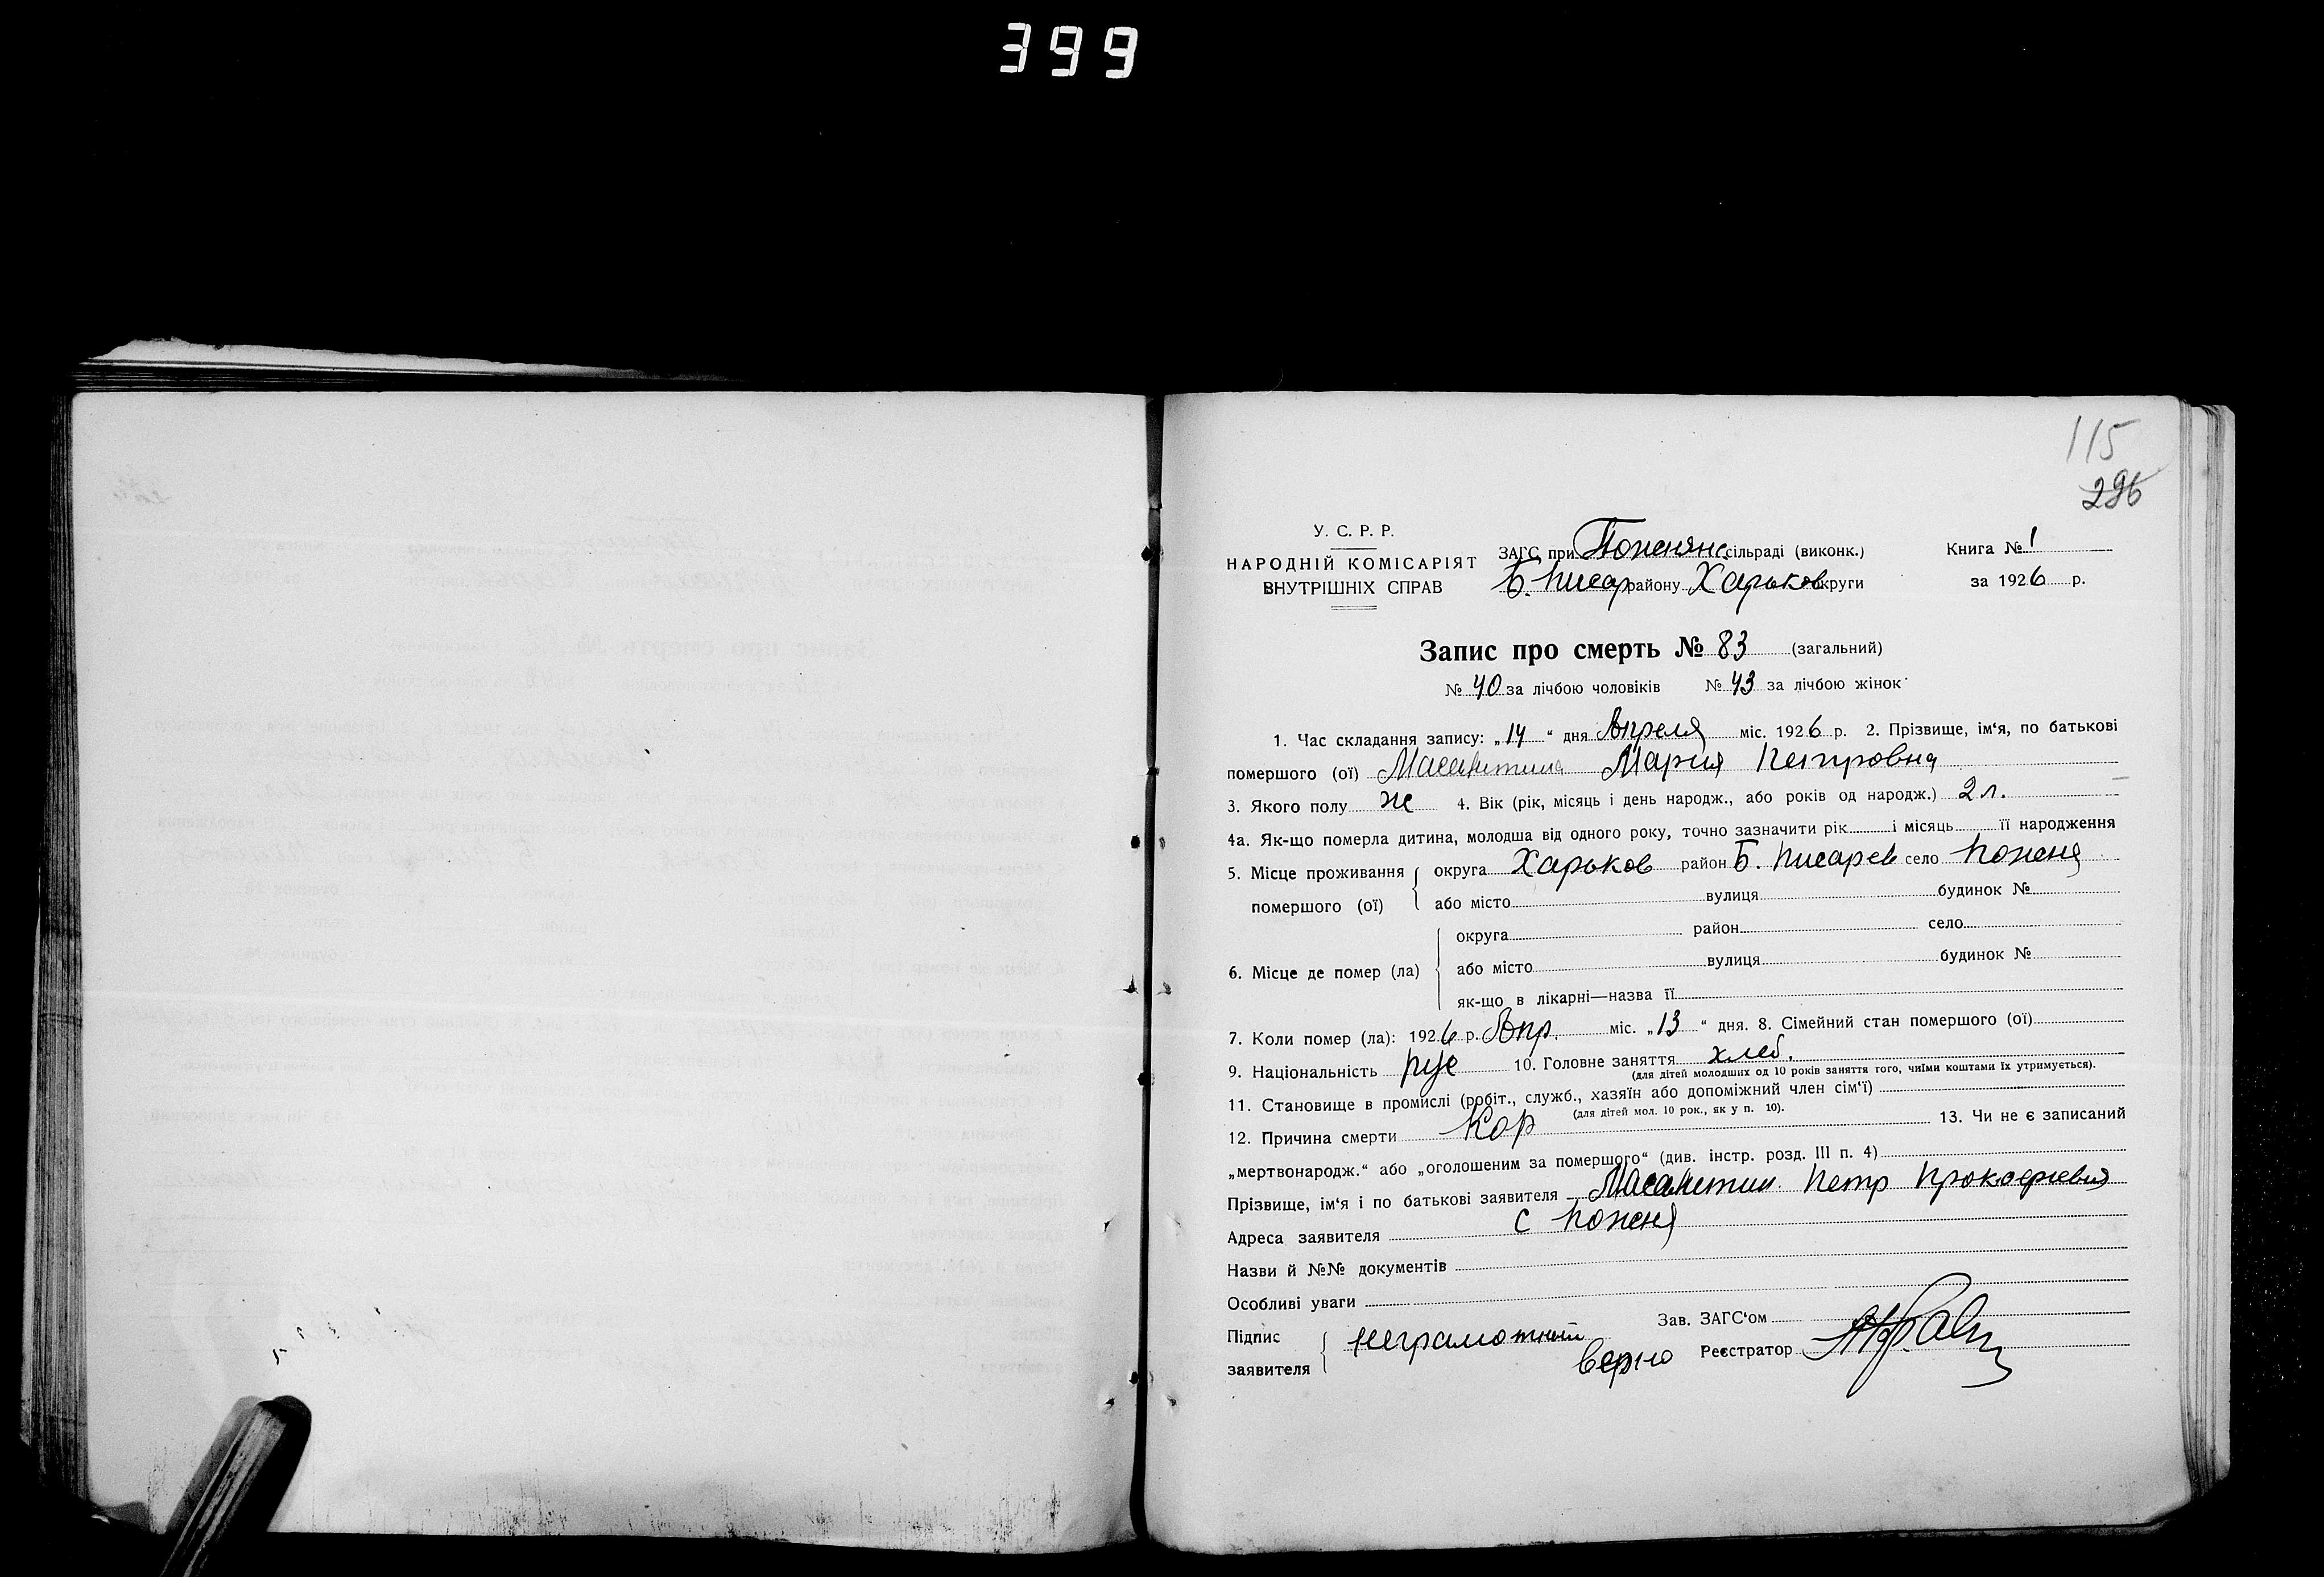 399
115
296
У. С. Р. Р.
НАРОДНІЙ КОМІСАРІЯТ
ВНУТРІШНІХ СПРАВ
ЗАГС при Поженянс сільраді (виконк.)
Б. Писар району Харьков округи
Книга № 1
за 1926 р.
Запис про смерть № 83 (загальний)
№ 40 за лічбою чоловіків № 43 за лічбою жінок
1. Час складання запису: „14“ дня Апреля міс. 1926 р. 2. Прізвище, ім‘я, по батькові
помершого (ої) Мария Петровна
3. Якого полу ж 4. Вік (рік, місяць і день народж., або років од народж.) 2 л.
4а. Як-що померла дитина, молодша від одного року, точно зазначити рік і місяць її народження
5. Місце проживання помершого (ої) округа Харьков район Б. Писарев село Поженя
або місто вулиця будинок №
6. Місце де помер (ла) округа район село
або місто вулиця будинок №
як-що в лікарні—назва її
7. Коли помер (ла): 1926 р. Апр. міс. „13“ дня. 8. Сімейний стан помершого (ої)
9. Національність рус 10. Головне заняття хлеб.
(для дітей молодших од 10 років заняття того, чиїми коштами їх утримується).
11. Становище в промислі (робіт., служб., хазяїн або допоміжний член сім‘ї)
(для дітей мол. 10 рок., як у п. 10).
12. Причина смерти Кор 13. Чи не є записаний
„мертвонародж.“ або „оголошеним за помершого“ (див. інстр. розд. III п. 4)
Прізвище, ім‘я і по батькові заявителя Петр Прокофиевич
Адреса заявителя с Поженя
Назви й №№ документів
Особливі уваги
Підпис заявителя неграмотный
Зав. ЗАГС‘ом
верно Реєстратор